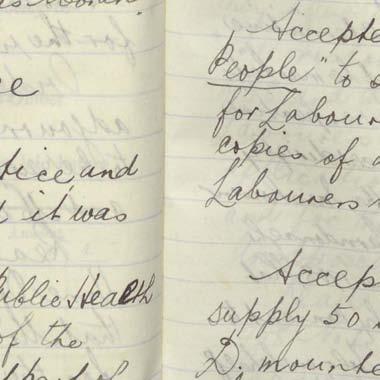 ce
tice, and
it was
Public Health
of the
part of
Accepte
People" to
for Labour
copies of
Labourers
Accep
supply 50
D. mounte